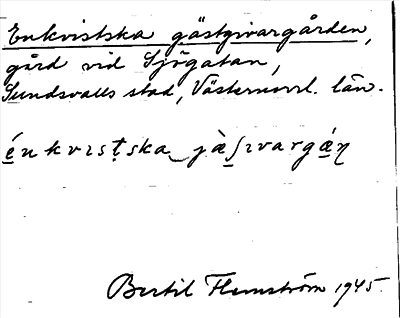 Enkvistska gästgivargården,
gård vid Sjögatan,
Sundsvalls stad, Västernorrl. län.
énkvıstska jàʃıvargáṇ
Bertil Flemström 1945.